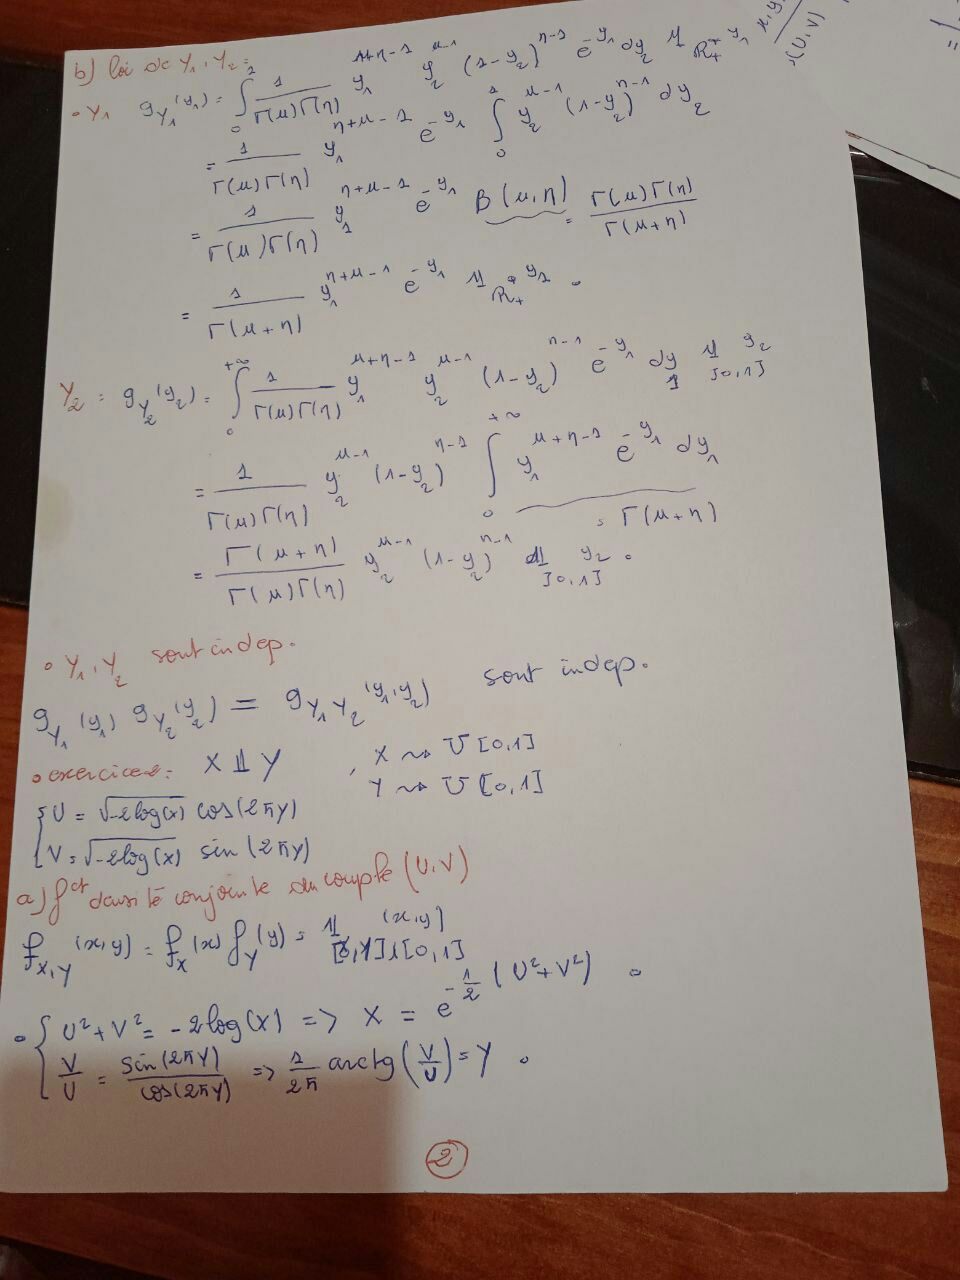 b) loi de Y₁, Y₂ :
• Y₁ g_{Y₁}(y₁) = ∫₀¹ 1/(Γ(μ)Γ(η)) y₁^{μ+η-1} y₂^{μ-1} (1-y₂)^{η-1} e^{-y₁} dy₂ 𝟙_{ℝ₊*} y₁
= 1/(Γ(μ)Γ(η)) y₁^{η+μ-1} e^{-y₁} ∫₀¹ y₂^{μ-1} (1-y₂)^{η-1} dy₂
= 1/(Γ(μ)Γ(η)) y₁^{η+μ-1} e^{-y₁} B(μ,η) = Γ(μ)Γ(η)/Γ(μ+η)
= 1/Γ(μ+η) y₁^{η+μ-1} e^{-y₁} 𝟙_{ℝ₊*} y₁ .
Y₂ : g_{Y₂}(y₂) = ∫₀^{+∞} 1/(Γ(μ)Γ(η)) y₁^{μ+η-1} y₂^{μ-1} (1-y₂)^{η-1} e^{-y₁} dy₁ 𝟙_{]0,1]} y₂
= 1/(Γ(μ)Γ(η)) y₂^{μ-1} (1-y₂)^{η-1} ∫₀^{+∞} y₁^{μ+η-1} e^{-y₁} dy₁
= Γ(μ+η)
= Γ(μ+η)/(Γ(μ)Γ(η)) y₂^{μ-1} (1-y₂)^{η-1} 𝟙_{]0,1]} y₂ .
• Y₁, Y₂ sont indep.
g_{Y₁}(y₁) g_{Y₂}(y₂) = g_{Y₁Y₂}(y₁,y₂) sont indep.
• exercice 2: X ⫫ Y , X ⇝ U[0,1]
Y ⇝ U[0,1]
{ U = √(-2log(x)) cos(2πY)
V = √(-2log(x)) sin(2πY)
a) f^{ct} densité conjointe du couple (U,V)
f_{X,Y}(x,y) = f_X(x) f_Y(y) = 𝟙_{[0,1]×[0,1]}(x,y)
• { U²+V² = -2log(X) => X = e^{-1/2 (U²+V²)} .
V/U = sin(2πY)/cos(2πY) => 1/2π arctg(V/U) = Y .
2
(U,V)